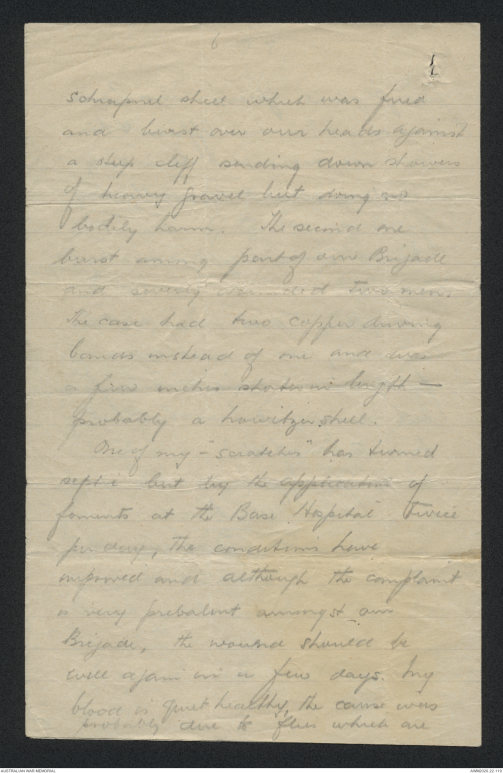 6
schrapnel shell which was fired
and burst over our heads against
a steep cliff sending down showers
of heavy gravel but doing no
bodily harm. The second one
burst among part of our Brigade
and severly wounded two men.
The case had two copper driving
bands instead of one and was
a few inches shorter in length —
probably a howitzer shell.
One of my "scratches" has turned
septic but by the application of
foments at the Base Hospital twice
per day, the conditions have
improved and although the complaint
is very prebalent amongst our
Brigade, the wound should be
well again in a few days. My
blood is quiet healthy, the cause was
probably due to flies which are
AUSTRALIAN WAR MEMORIAL